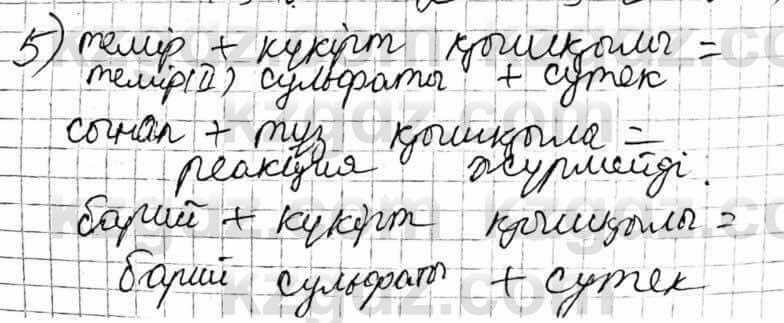 5) темір + күкірт қышқылы =
темір(II) сульфаты + сутек
сынап + тұз қышқыла =
реакция жүрмейді.
барий + күкірт қышқылы =
барий сульфаты + сутек